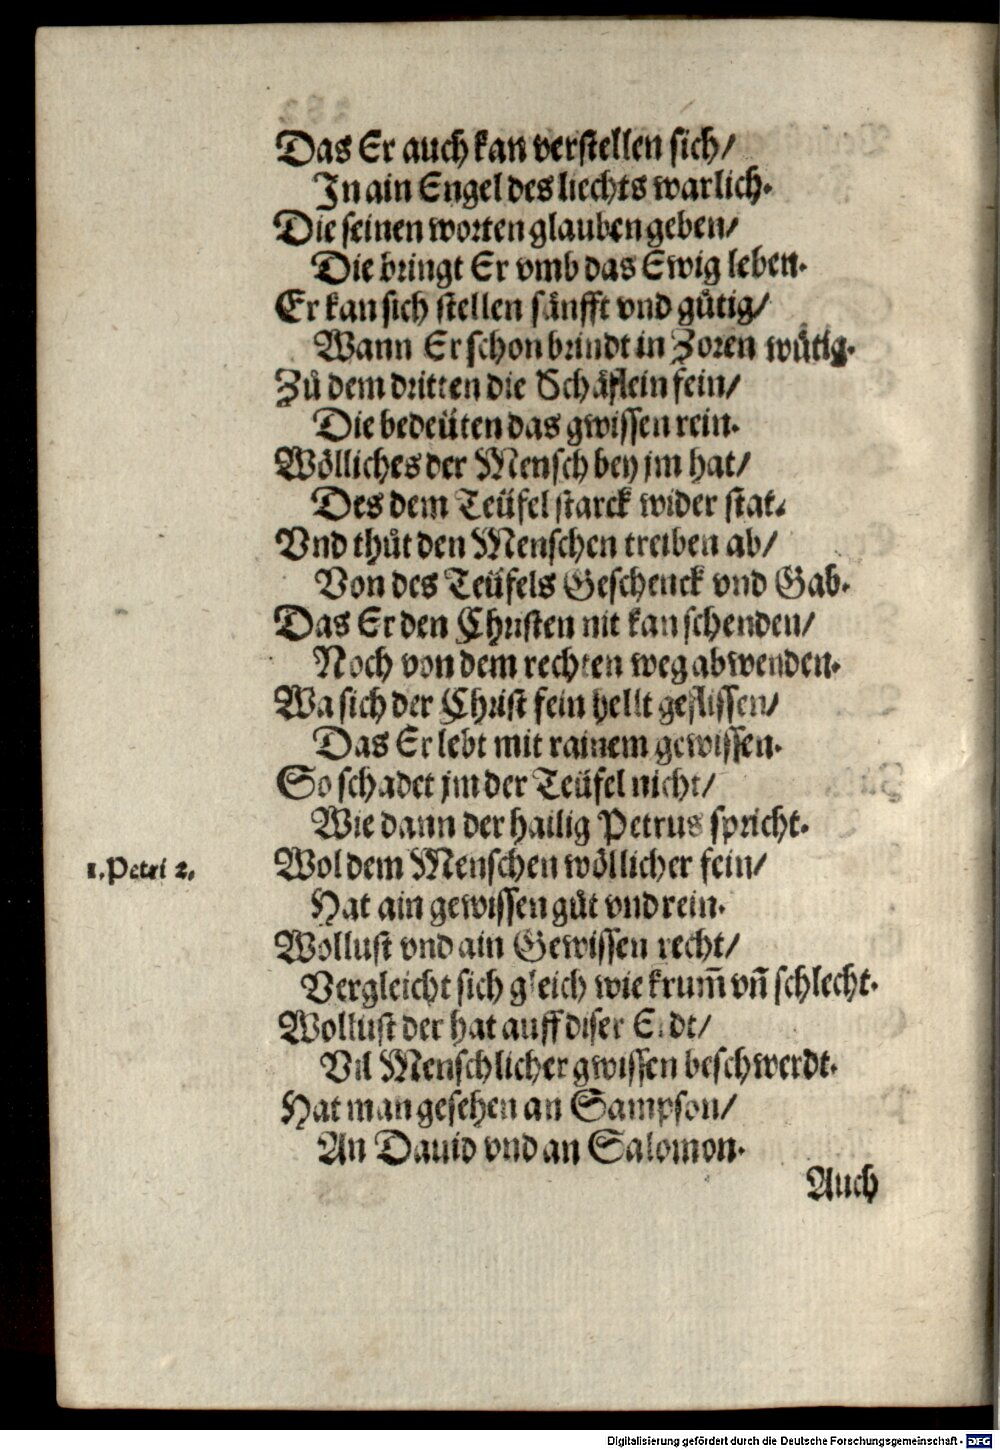 Das Er auch kan verstellen sich/
In ain Engel des liechts warlich.
Die seinen worten glauben geben/
Die bringt Er vmb das Ewig leben.
Er kan sich stellen sånfft vnd gůtig/
Wann Er schon brindt in Zoren wůtig.
Zů dem dritten die Schåflein fein/
Die bedeüten das gwissen rein.
Wölliches der Mensch bey jm hat/
Des dem Teüfel starck wider stat.
Vnd thůt den Menschen treiben ab/
Von des Teüfels Geschenck vnd Gab.
Das Er den Christen nit kan schenden/
Noch von dem rechten weg abwenden.
Wa sich der Christ fein hellt geflissen/
Das Er lebt mit rainem gewissen.
So schadet jm der Teüfel nicht/
Wie dann der hailig Petrus spricht.
1. Petri 2.
Wol dem Menschen wöllicher fein/
Hat ain gewissen gůt vnd rein.
Wollust vnd ain Gewissen recht/
Vergleicht sich gleich wie krum̄ vn̄ schlecht.
Wollust der hat auff diser Erdt/
Vil Menschlicher gwissen beschwerdt.
Hat man gesehen an Sampson/
An Dauid vnd an Salomon.
Auch
Digitalisierung gefördert durch die Deutsche Forschungsgemeinschaft - DFG